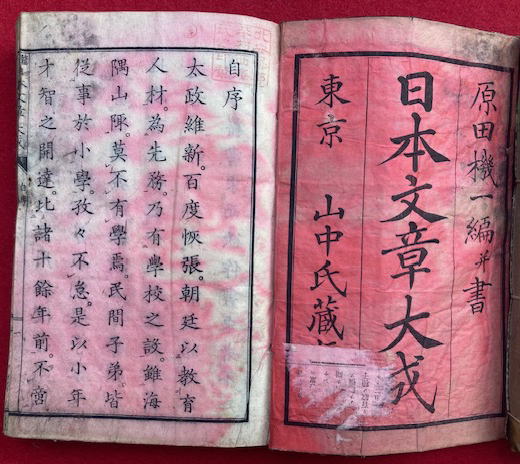 原田機一編并書
日本文章大成
東京 山中氏藏
自序
太政維新。百度恢張。朝廷以教育
人材。為先務。乃有學校之設。雖海
隅山陬。莫不有學焉。民間子弟。皆
從事於小學。孜々不怠。是以小年
才智之開達。比諸十餘年前。不啻